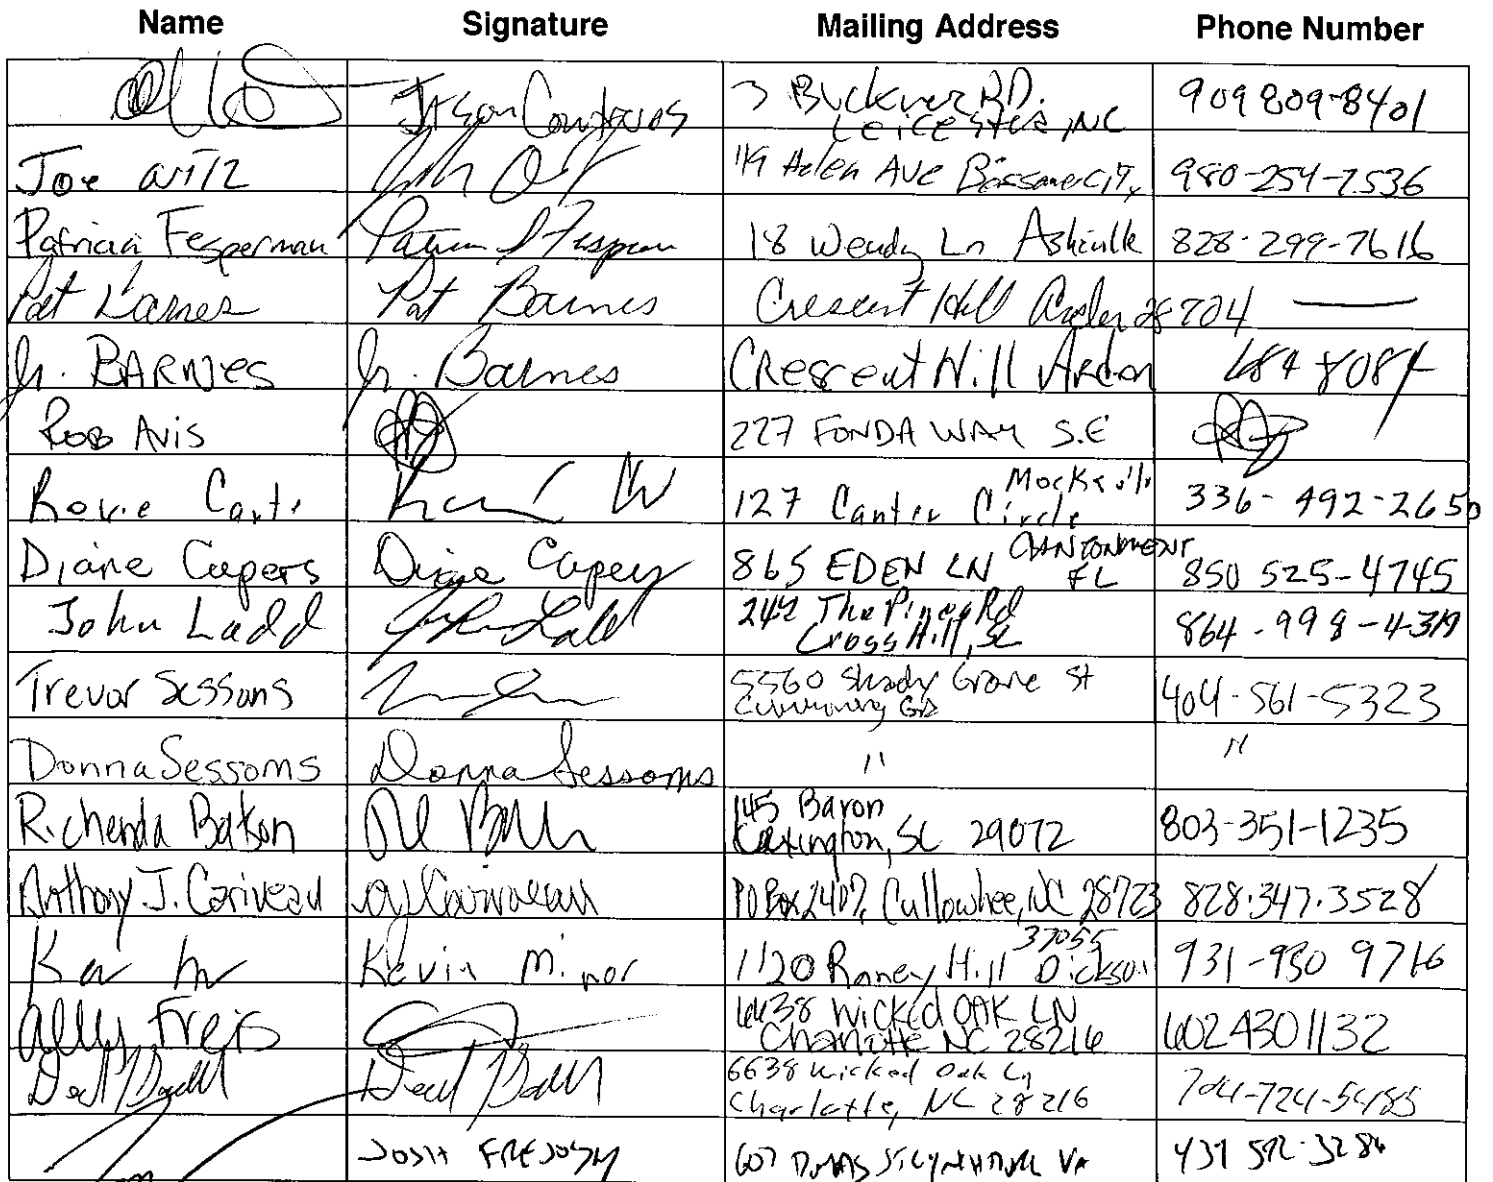 Name Signature Mailing Address Phone Number
Jason 3 Buckner RD. Leicester, NC 909 809-8401
Joe 119 Helen Ave Bessemer City, 980-254-7536
Patricia Fesperman 18 Wendy Ln Asheville 828-299-7616
Pat Barnes Pat Barnes Crescent Hill Arden 28704
Jr. BARNES Jr. Barnes Crescent Hill Arden 684 8084
Rob Avis 227 FONDA WAY S.E
127 Canter Circle Mocksville 336-492-2650
Diane Capers Diane Capers 865 EDEN LN CANTONMENT FL 850 525-4745
John Ladd John Ladd 242 The Pines Rd Cross Hill, SC 864-998-4319
Trevor Sessoms 5560 Shady Grove St Cumming GA 404-561-5323
Donna Sessoms Donna Sessoms " "
Richenda 145 Baron Lexington, SC 29072 803-351-1235
Anthony J. Cariveau AJ Cariveau PO Box 2407, Cullowhee, NC 28723 828.347.3528
Kevin Minor 1120 Raney Hill Dickson 37055 931-930 9716
Ally Freis 6638 Wicked OAK LN Charlotte NC 28216 6024301132
6638 Wicked Oak Ln Charlotte, NC 28216 704-724-5485
JOSH 607